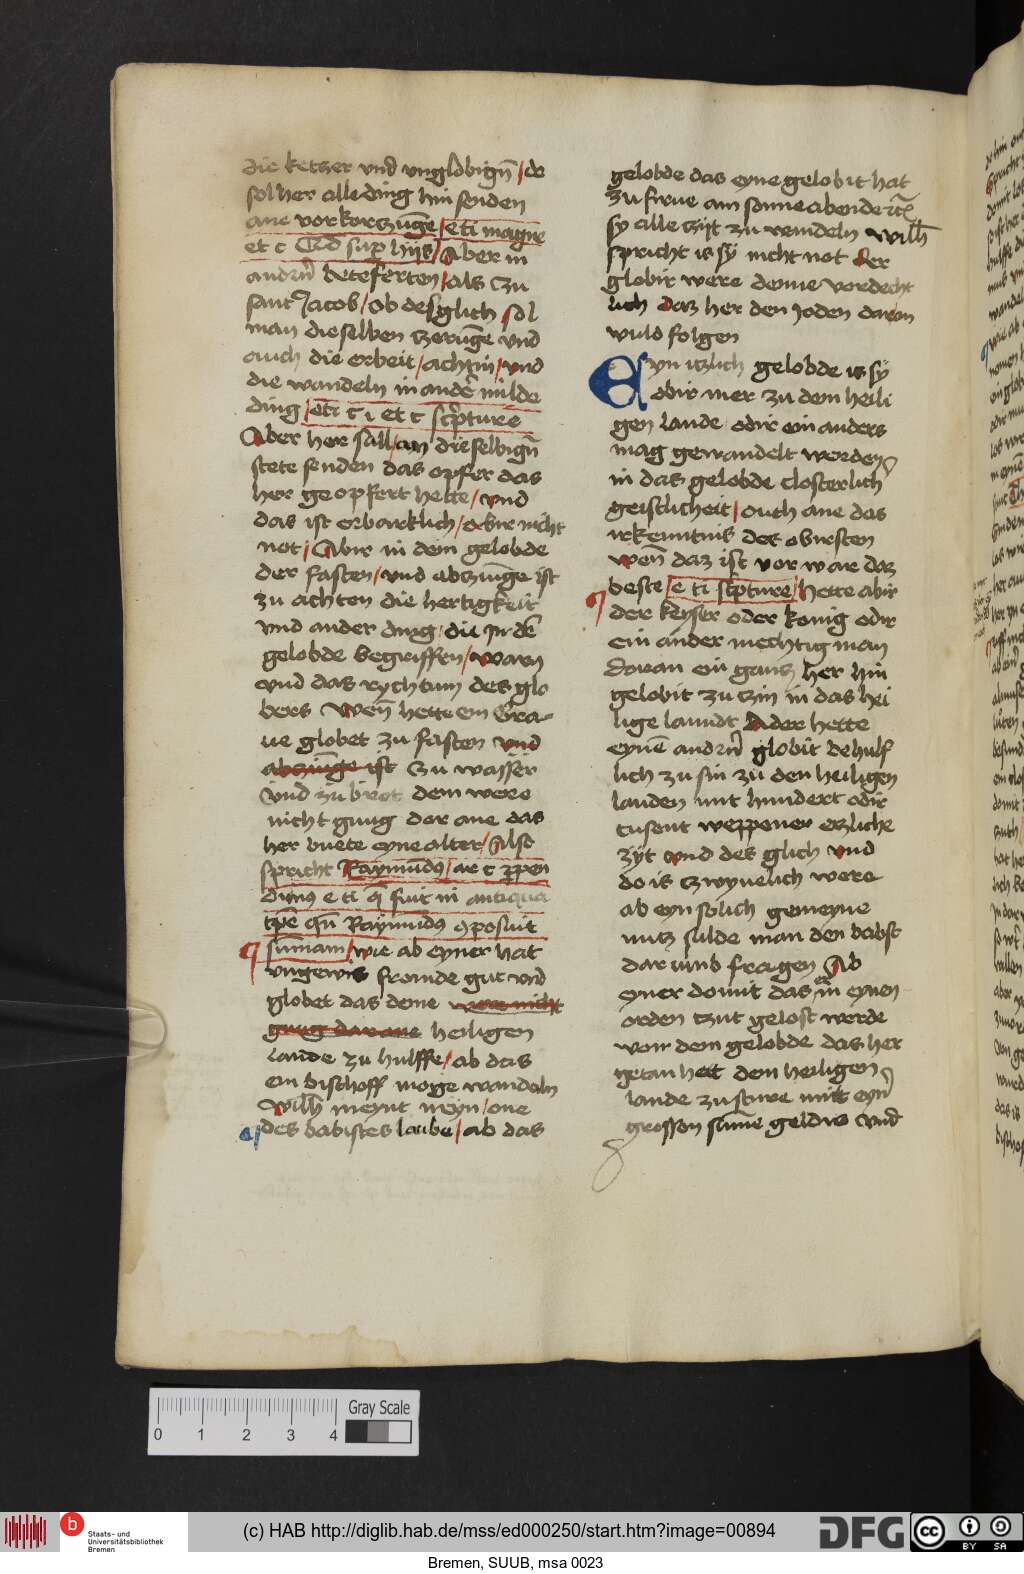 die ketzer vnd vnglobigñ / do
sol her alle ding hin senden
ane vorkorczunge / e ti magne
et c Qd sup hijs / Aber in
andrñ beteferten / als zu
sant Jacob / Ob desglich sol
man dieselben zerunge vnd
ouch die erbeit / achtin / vnd
die wandeln in ander milde
ding / e ti c i et c scpture
Aber her sall / an dieselbigñ
stete senden das opfer das
her geopfert hette / vnd
das ist erbarklich / odir nicht
not / Abir in dem gelobde
der fasten / vnd abczunge ist
zu achten die hertigkeit
vnd ander ding / die in dē
gelobde begriffen / warn
vnd das rychtum des glo
bers Wen hette ein Gra-
ue globet zu fasten vnd
abczunge ist zu wasser
vnd zu brot dem were
nicht gnug der ane das
her buete eyne alter / Also
spricht Raymūdus / ar c
e ti q fuit in antiqua
tpe qn Raymūdus posuit
sūmam / wie ab eyner hat
vngewis fromde gut vnd
globet das deme wer nicht
gnug dar ane heiligen
lande zu hulffe / ab das
ein bischoff moge wandeln
Wilh meynt neyn / one
des babistes laube / ab das
gelobde das eyne gelobit hat
zu frwe am sonneabende etc
sy alle czijt zu vemideln Wilh
spricht is sy nicht not der
globir were denne vordecht
lich daz her den Joden daran
wuld folgen
Eyn iczlich gelobde is sy
obir mer zu dem heili
gen lande odir ein anders
mag gewandelt werden
in das gelobde closterlich
geistlicheit / ouch ane das
irkenntnis des obirsten
Wen daz ist vor war daz
beste / e ti scpture / hette abir
der keyser oder konig odir
ein ander mechtig man
dauan ein gancz her hin
gelobit zu czin in das hei
lige lanndt Ader hette
eynē andrñ globit behulf
lich zu sin zu den heiligen
landen mit hundert odir
tusent weppener ezliche
zijt vnd des glich vnd
do is czwyuelich were
ab eyn solich gemeyne
nutz sulde man den babst
dar umb fragen Ab
eyner domit das er in eynen
orden czut gelost werde
vom dem gelobde das her
getan hett dem heiligen
lande zu sture mitt eyñ
grossen sūme geldes vnd
0 1 2 3 4
Gray Scale
b
Staats- und
Universitätsbibliothek
Bremen
(c) HAB http://diglib.hab.de/mss/ed000250/start.htm?image=00894
DFG
cc
BY SA
Bremen, SUUB, msa 0023